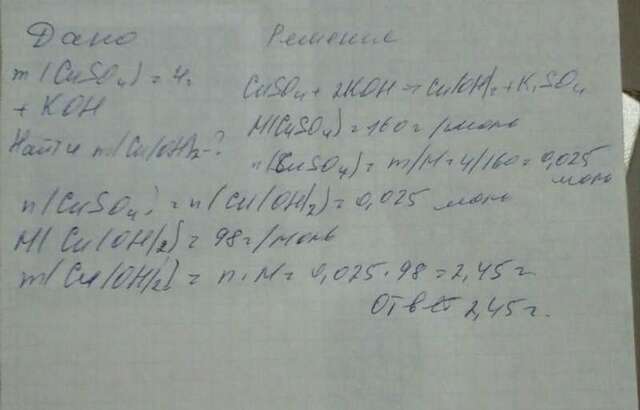 Дано
Решение
m(CuSO4) = 4г
+ KOH
Найти m(Cu(OH)2-?
CuSO4 + 2KOH → Cu(OH)2 + K2SO4
M(CuSO4) = 160 г/моль
n(CuSO4) = m/M = 4/160 = 0,025 моль
n(CuSO4) = n(Cu(OH)2) = 0,025 моль
M(Cu(OH)2) = 98 г/моль
m(Cu(OH)2) = n·M = 0,025·98 = 2,45 г
Ответ 2,45 г.